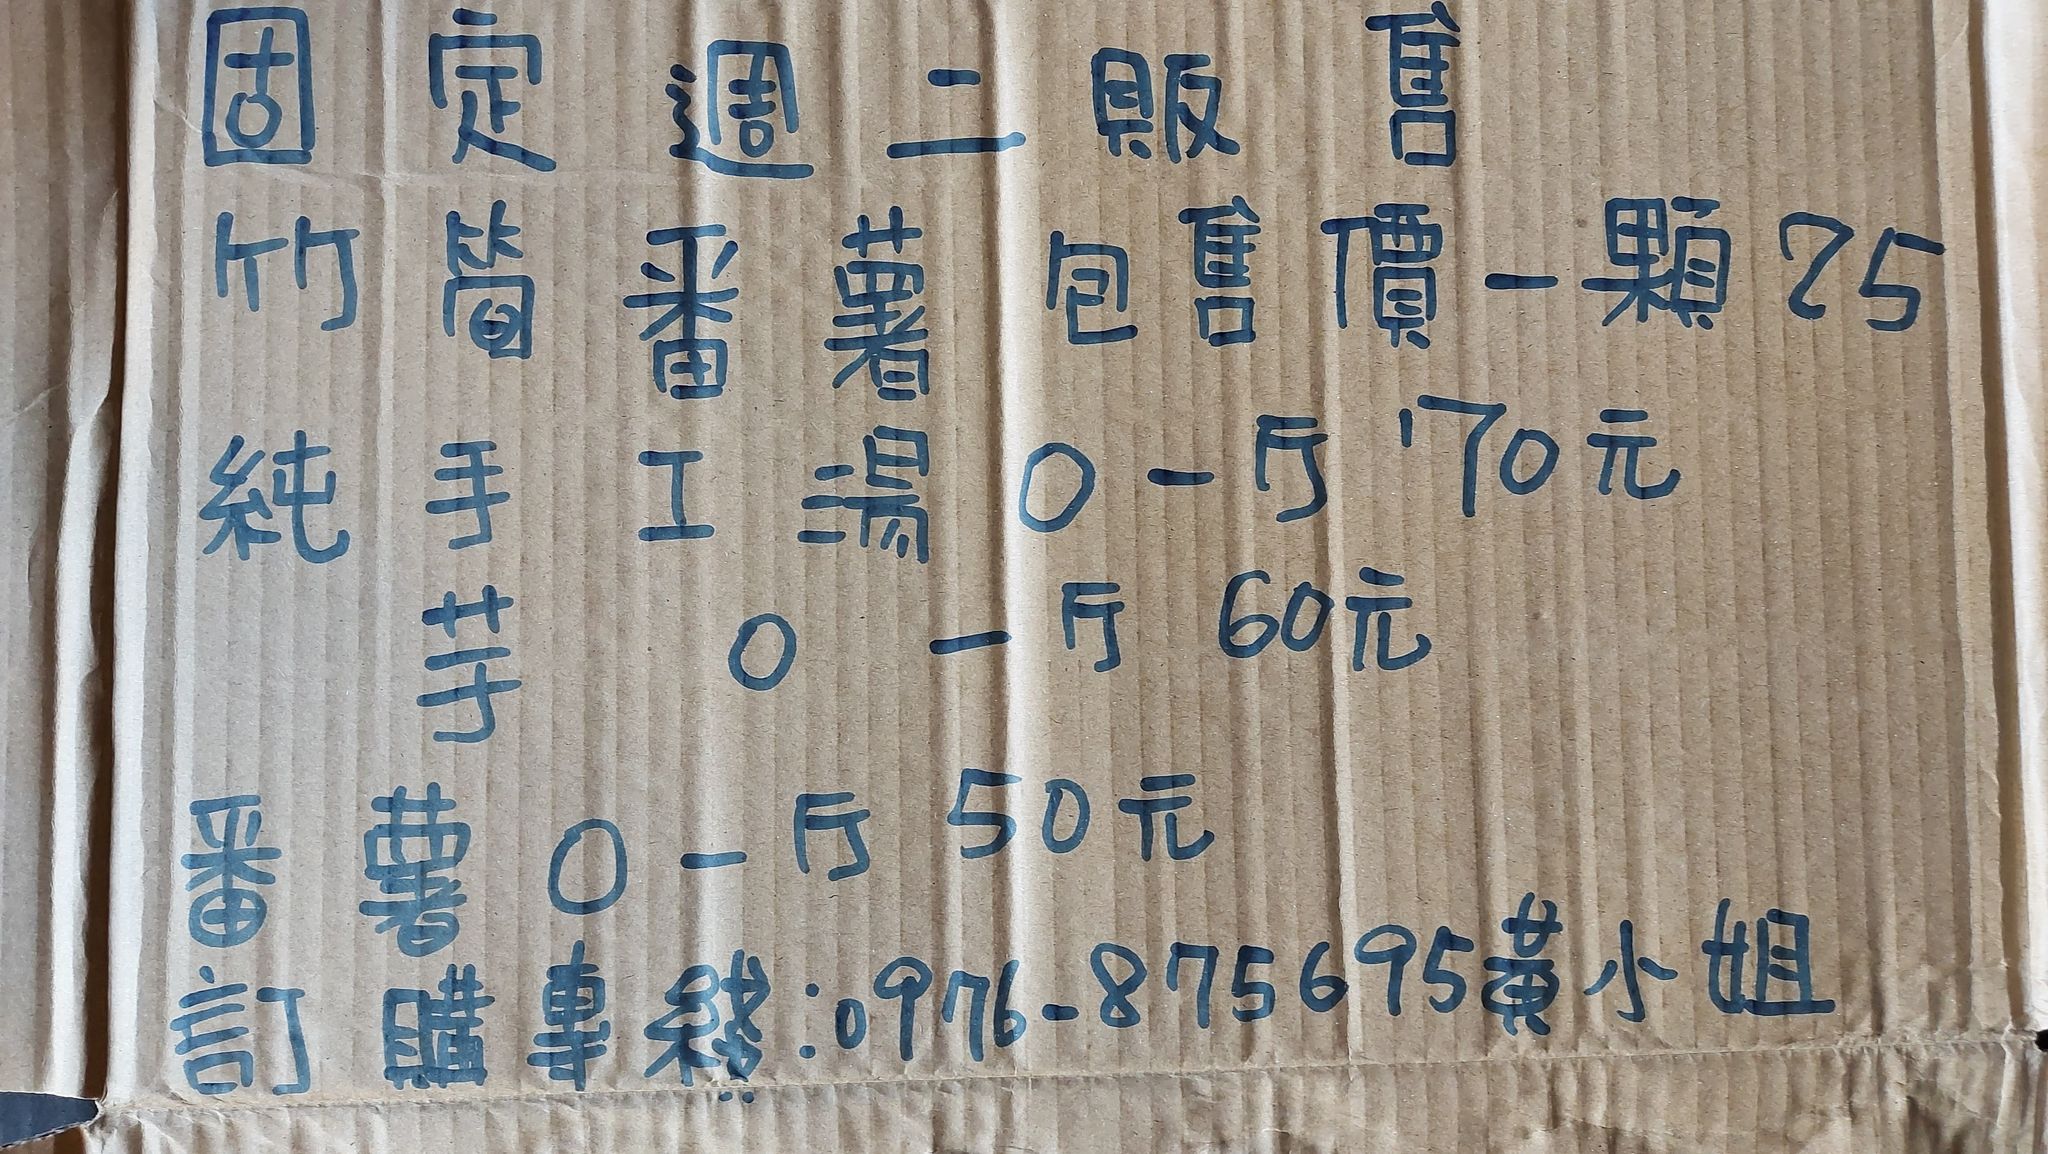 固定週二販售
竹筒番薯包售價一顆25
純手工湯0一斤70元
芋0一斤60元
番薯0一斤50元
訂購專綫:0976-875695黃小姐